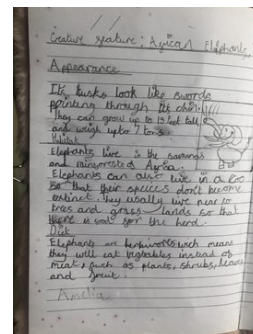 Creature feature: African Elephants
Appearance
It's tusks look like swords
pointing through its chin.
They can grow up to 13 feet tall
and weigh upto 7 tons.
Habitat
Elephants live in the savannas
and rainforests of Africa.
Elephants can also live in a zoo
so that their species don't become
extinct. They usally live near to
trees and grass lands so that
there is food for the herd.
Diet
Elephants are herbivores wich means
they will eat vegtables instead of
meat, such as plants, shrubs, leaves
and fruit.
Amelia